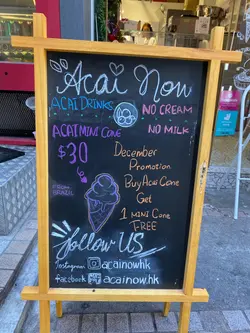 Acai Now
ACAI DRINKS
NO CREAM
NO MILK
ACAI MINI CONE
$30
December
Promotion
Buy Acai Cone
Get
1 MINI Cone
FREE
FROM
BRAZIL
follow US
Instagram acainowhk
facebook acainow.hk